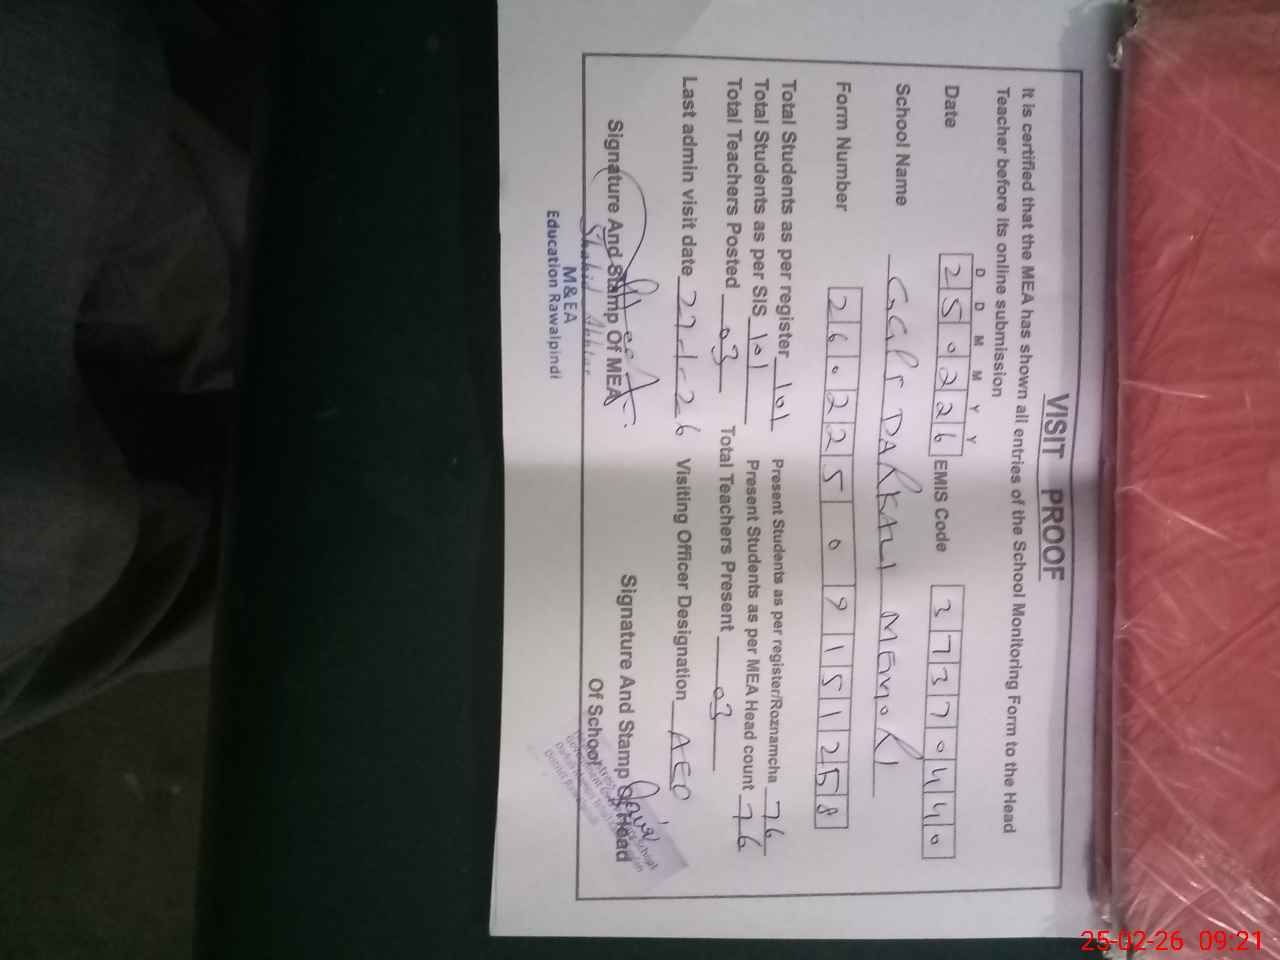 VISIT PROOF
It is certified that the MEA has shown all entries of the School Monitoring Form to the Head
Teacher before its online submission
D D M M Y Y
Date 2 5 0 2 2 6 EMIS Code 3 7 3 7 0 4 4 0
School Name GGPS DARKALI MAMORI
Form Number 2 6 0 2 2 5 0 9 1 5 1 2 5 8
Total Students as per register 101 Present Students as per register/Roznamcha 76
Total Students as per SIS 101 Present Students as per MEA Head count 76
Total Teachers Posted 03 Total Teachers Present 03
Last admin visit date 27-1-26 Visiting Officer Designation AEO
Signature And Stamp Of MEA Signature And Stamp Of Head
Of School
Shahid Akhtar
M&EA
Education Rawalpindi
25-02-26 09:21